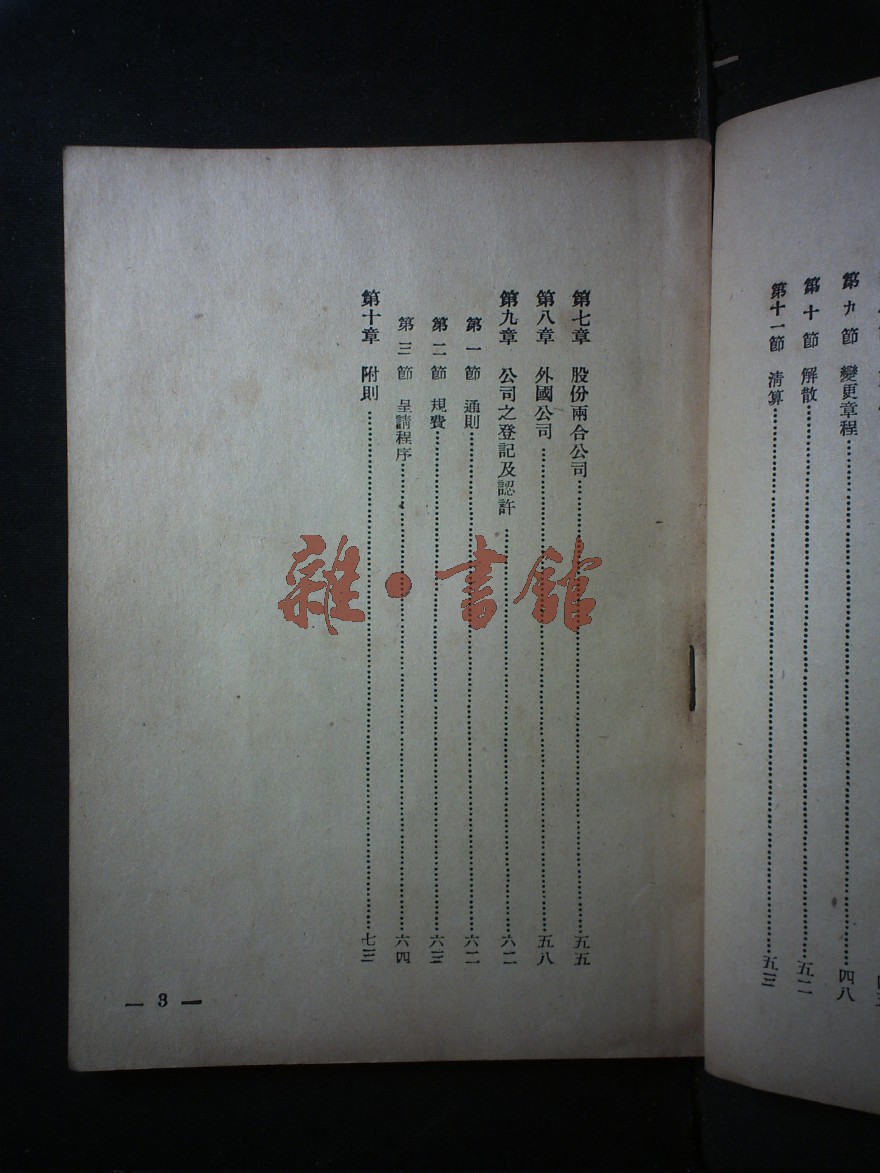 第九節　變更章程……四八
第十節　解散……五二
第十一節　清算……五三
第七章　股份兩合公司……五五
第八章　外國公司……五八
第九章　公司之登記及認許……六二
第一節　通則……六二
第二節　規費……六三
第三節　呈請程序……六四
第十章　附則……七三
— 3 —
雜·書館